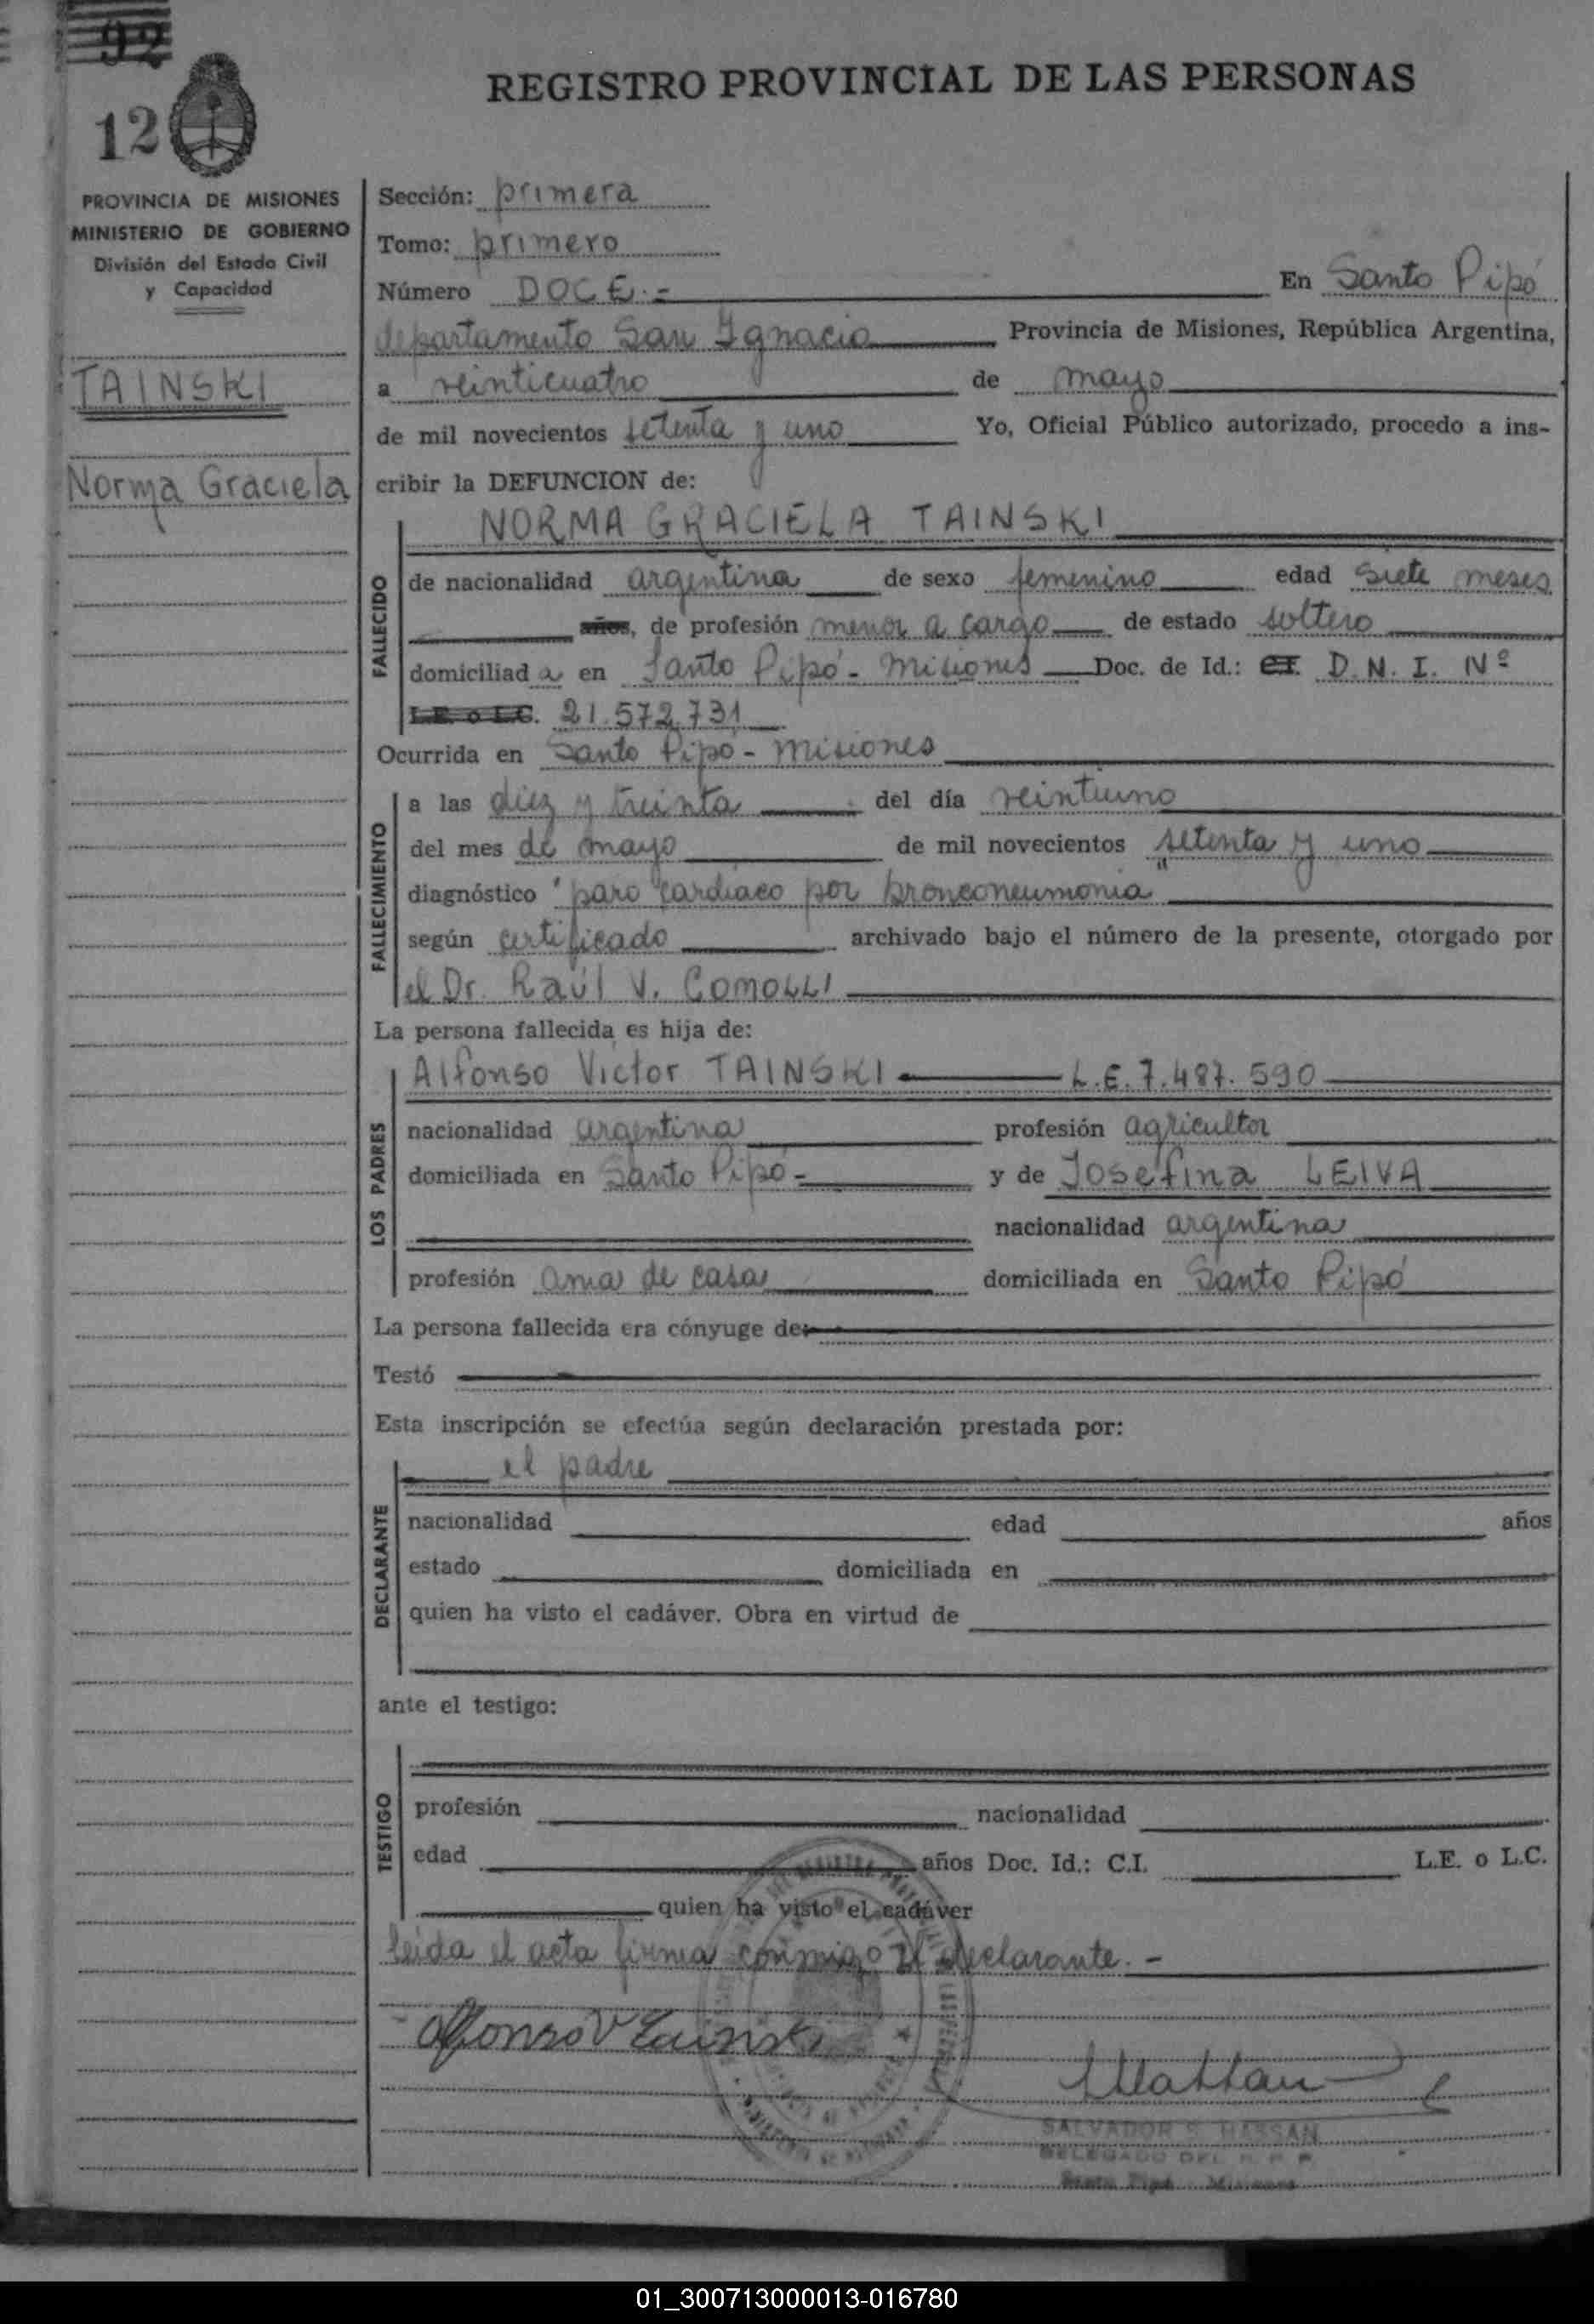 92
12
REGISTRO PROVINCIAL DE LAS PERSONAS
PROVINCIA DE MISIONES
MINISTERIO DE GOBIERNO
División del Estado Civil
y Capacidad
TAINSKI
Norma Graciela
Sección: primera
Tomo: primero
Número DOCE.- En Santo Pipó
departamento San Ignacio Provincia de Misiones, República Argentina,
a veinticuatro de mayo
de mil novecientos setenta y uno Yo, Oficial Público autorizado, procedo a ins-
cribir la DEFUNCION de:
FALLECIDO
NORMA GRACIELA TAINSKI
de nacionalidad argentina de sexo femenino edad siete meses
años, de profesión menor a cargo de estado soltero
domiciliad a en Santo Pipó - Misiones Doc. de Id.: CI. D.N.I. Nº
L.E. o L.C. 21.572.731
Ocurrida en Santo Pipó - Misiones
FALLECIMIENTO
a las diez y treinta del día veintiuno
del mes de mayo de mil novecientos setenta y uno
diagnóstico "paro cardíaco por bronconeumonia"
según certificado archivado bajo el número de la presente, otorgado por
el Dr. Raúl V. COMOLLI
La persona fallecida es hija de:
LOS PADRES
Alfonso Victor TAINSKI L.E. 7.487.590
nacionalidad argentina profesión agricultor
domiciliada en Santo Pipó - y de Josefina LEIVA
nacionalidad argentina
profesión ama de casa domiciliada en Santo Pipó
La persona fallecida era cónyuge de:
Testó
Esta inscripción se efectúa según declaración prestada por:
DECLARANTE
el padre
nacionalidad edad años
estado domiciliada en
quien ha visto el cadáver. Obra en virtud de
ante el testigo:
TESTIGO
profesión nacionalidad
edad años Doc. Id.: C.I. L.E. o L.C.
quien ha visto el cadáver
leida el acta firma conmigo el declarante.-
Alfonso V Tainski
SALVADOR S. HASSAN
DELEGADO DEL R. P. P.
Santo Pipó - Misiones
01_300713000013-016780